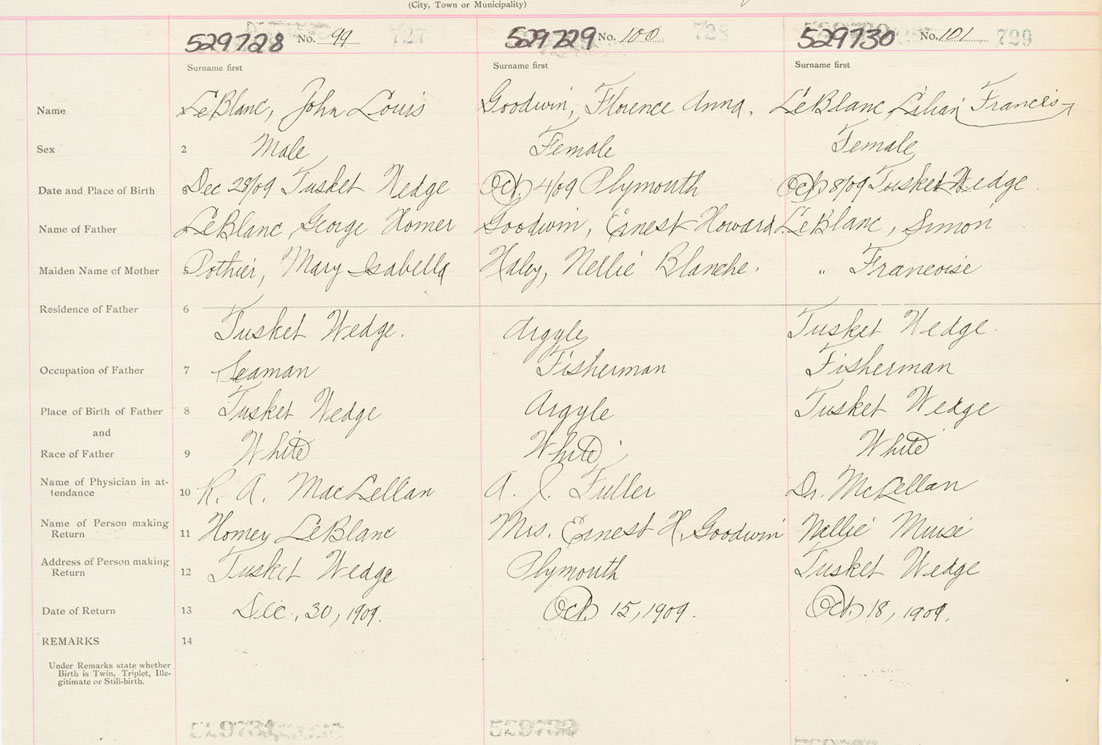 (City, Town or Municipality)
529728 No. 99 727 529729 No. 100 728 529730 No. 101 729
Surname first Surname first Surname first
Name LeBlanc, John Louis Goodwin, Florence Anna. LeBlanc, Lilian Francis
Sex 2 Male Female Female
Date and Place of Birth Dec 28/09 Tusket Wedge Oct 4/09 Plymouth Oct 8/09 Tusket Wedge
Name of Father LeBlanc, George Homer Goodwin, Ernest Howard LeBlanc, Simon
Maiden Name of Mother 5 Pothier, Mary Isabella Haley, Nellie Blanche. " Francoise
Residence of Father 6 Tusket Wedge. Argyle Tusket Wedge.
Occupation of Father 7 Seaman Fisherman Fisherman
Place of Birth of Father 8 Tusket Wedge Argyle Tusket Wedge
and
Race of Father 9 White White White
Name of Physician in at-
tendance 10 R. A. MacLellan A. J. Fuller Dr. McLellan
Name of Person making
Return 11 Homer LeBlanc Mrs. Ernest H. Goodwin Nellie Muise
Address of Person making
Return 12 Tusket Wedge Plymouth Tusket Wedge
Date of Return 13 Dec. 30, 1909. Oct. 15, 1909. Oct. 18, 1909.
REMARKS 14
Under Remarks state whether
Birth is Twin, Triplet, Ille-
gitimate or Still-birth.